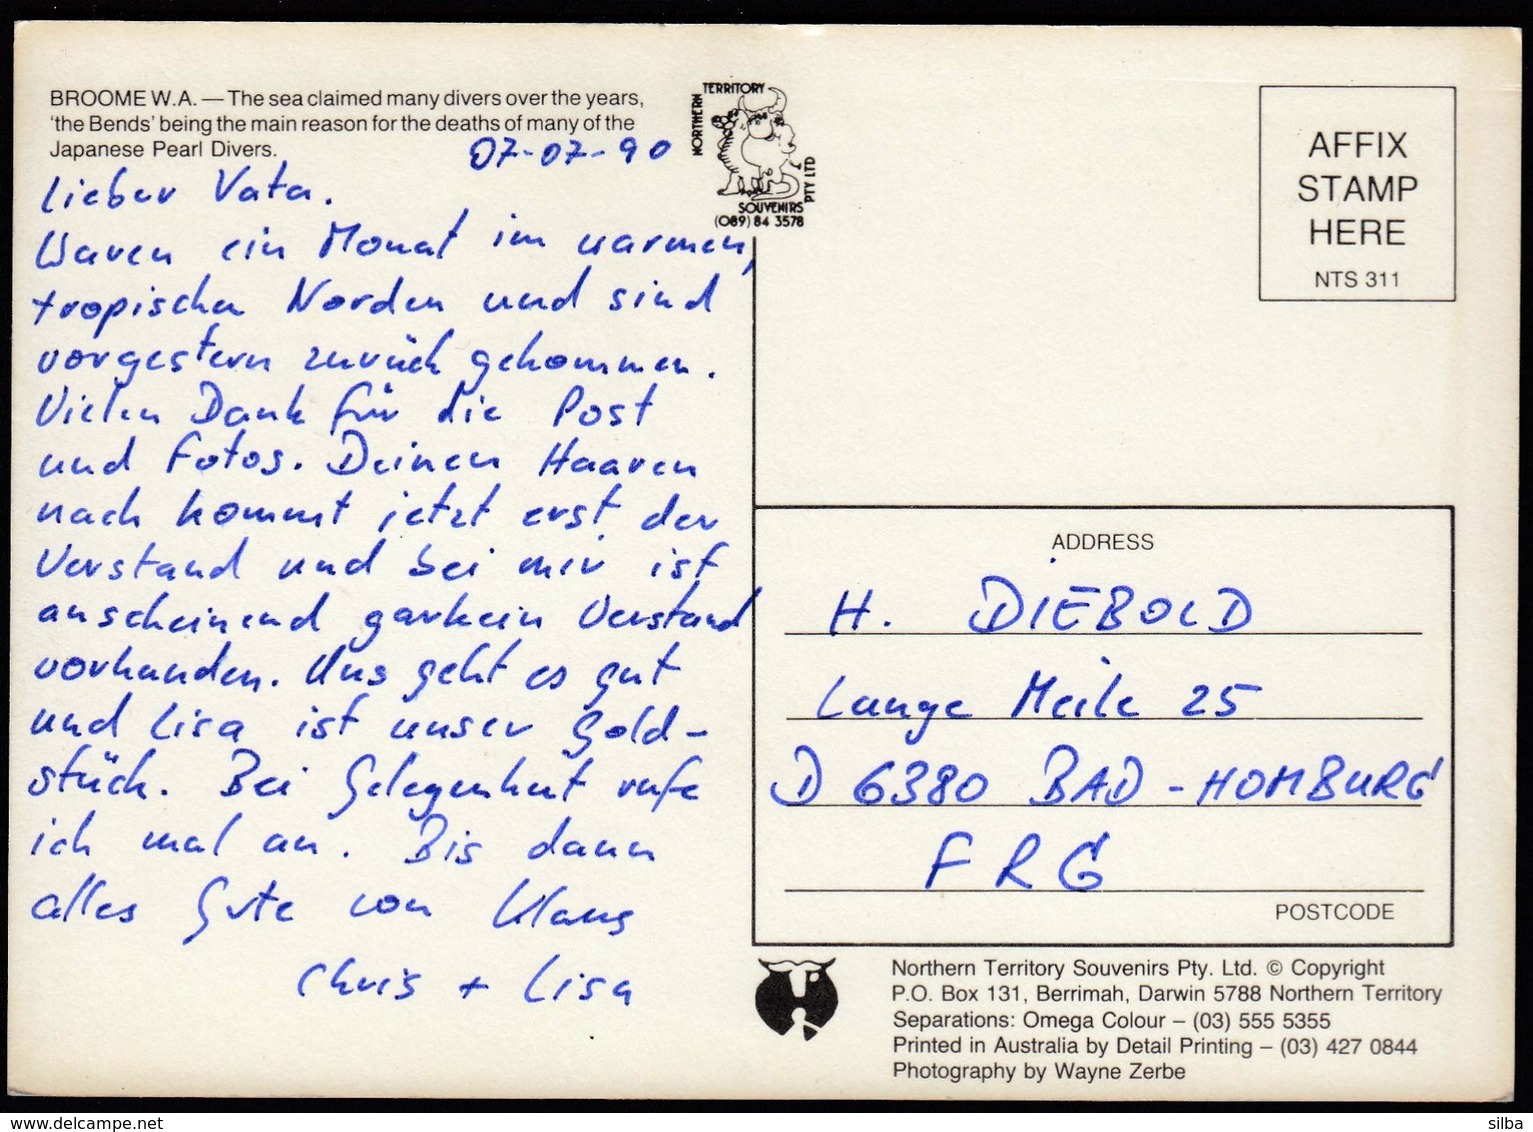 BROOME W.A. — The sea claimed many divers over the years,
'the Bends' being the main reason for the deaths of many of the
Japanese Pearl Divers.
07-07-90
Lieber Vata.
Waren ein Monat im warmen,
tropischen Norden und sind
vorgestern zurück gekommen.
Vielen Dank für die Post
und Fotos. Deinen Haaren
nach kommt jetzt erst der
Verstand und bei mir ist
anscheinend garkein Verstand
vorhanden. Uns geht es gut
und Lisa ist unser Gold-
stück. Bei Gelegenheit rufe
ich mal an. Bis dann
alles Gute von Klaus
Chris + Lisa
NORTHERN TERRITORY
SOUVENIRS PTY LTD
(089) 84 3578
AFFIX
STAMP
HERE
NTS 311
ADDRESS
H. DIEBOLD
Lange Meile 25
D 6380 BAD-HOMBURG
FRG
POSTCODE
Northern Territory Souvenirs Pty. Ltd. © Copyright
P.O. Box 131, Berrimah, Darwin 5788 Northern Territory
Separations: Omega Colour – (03) 555 5355
Printed in Australia by Detail Printing – (03) 427 0844
Photography by Wayne Zerbe
www.delcampe.net
silba